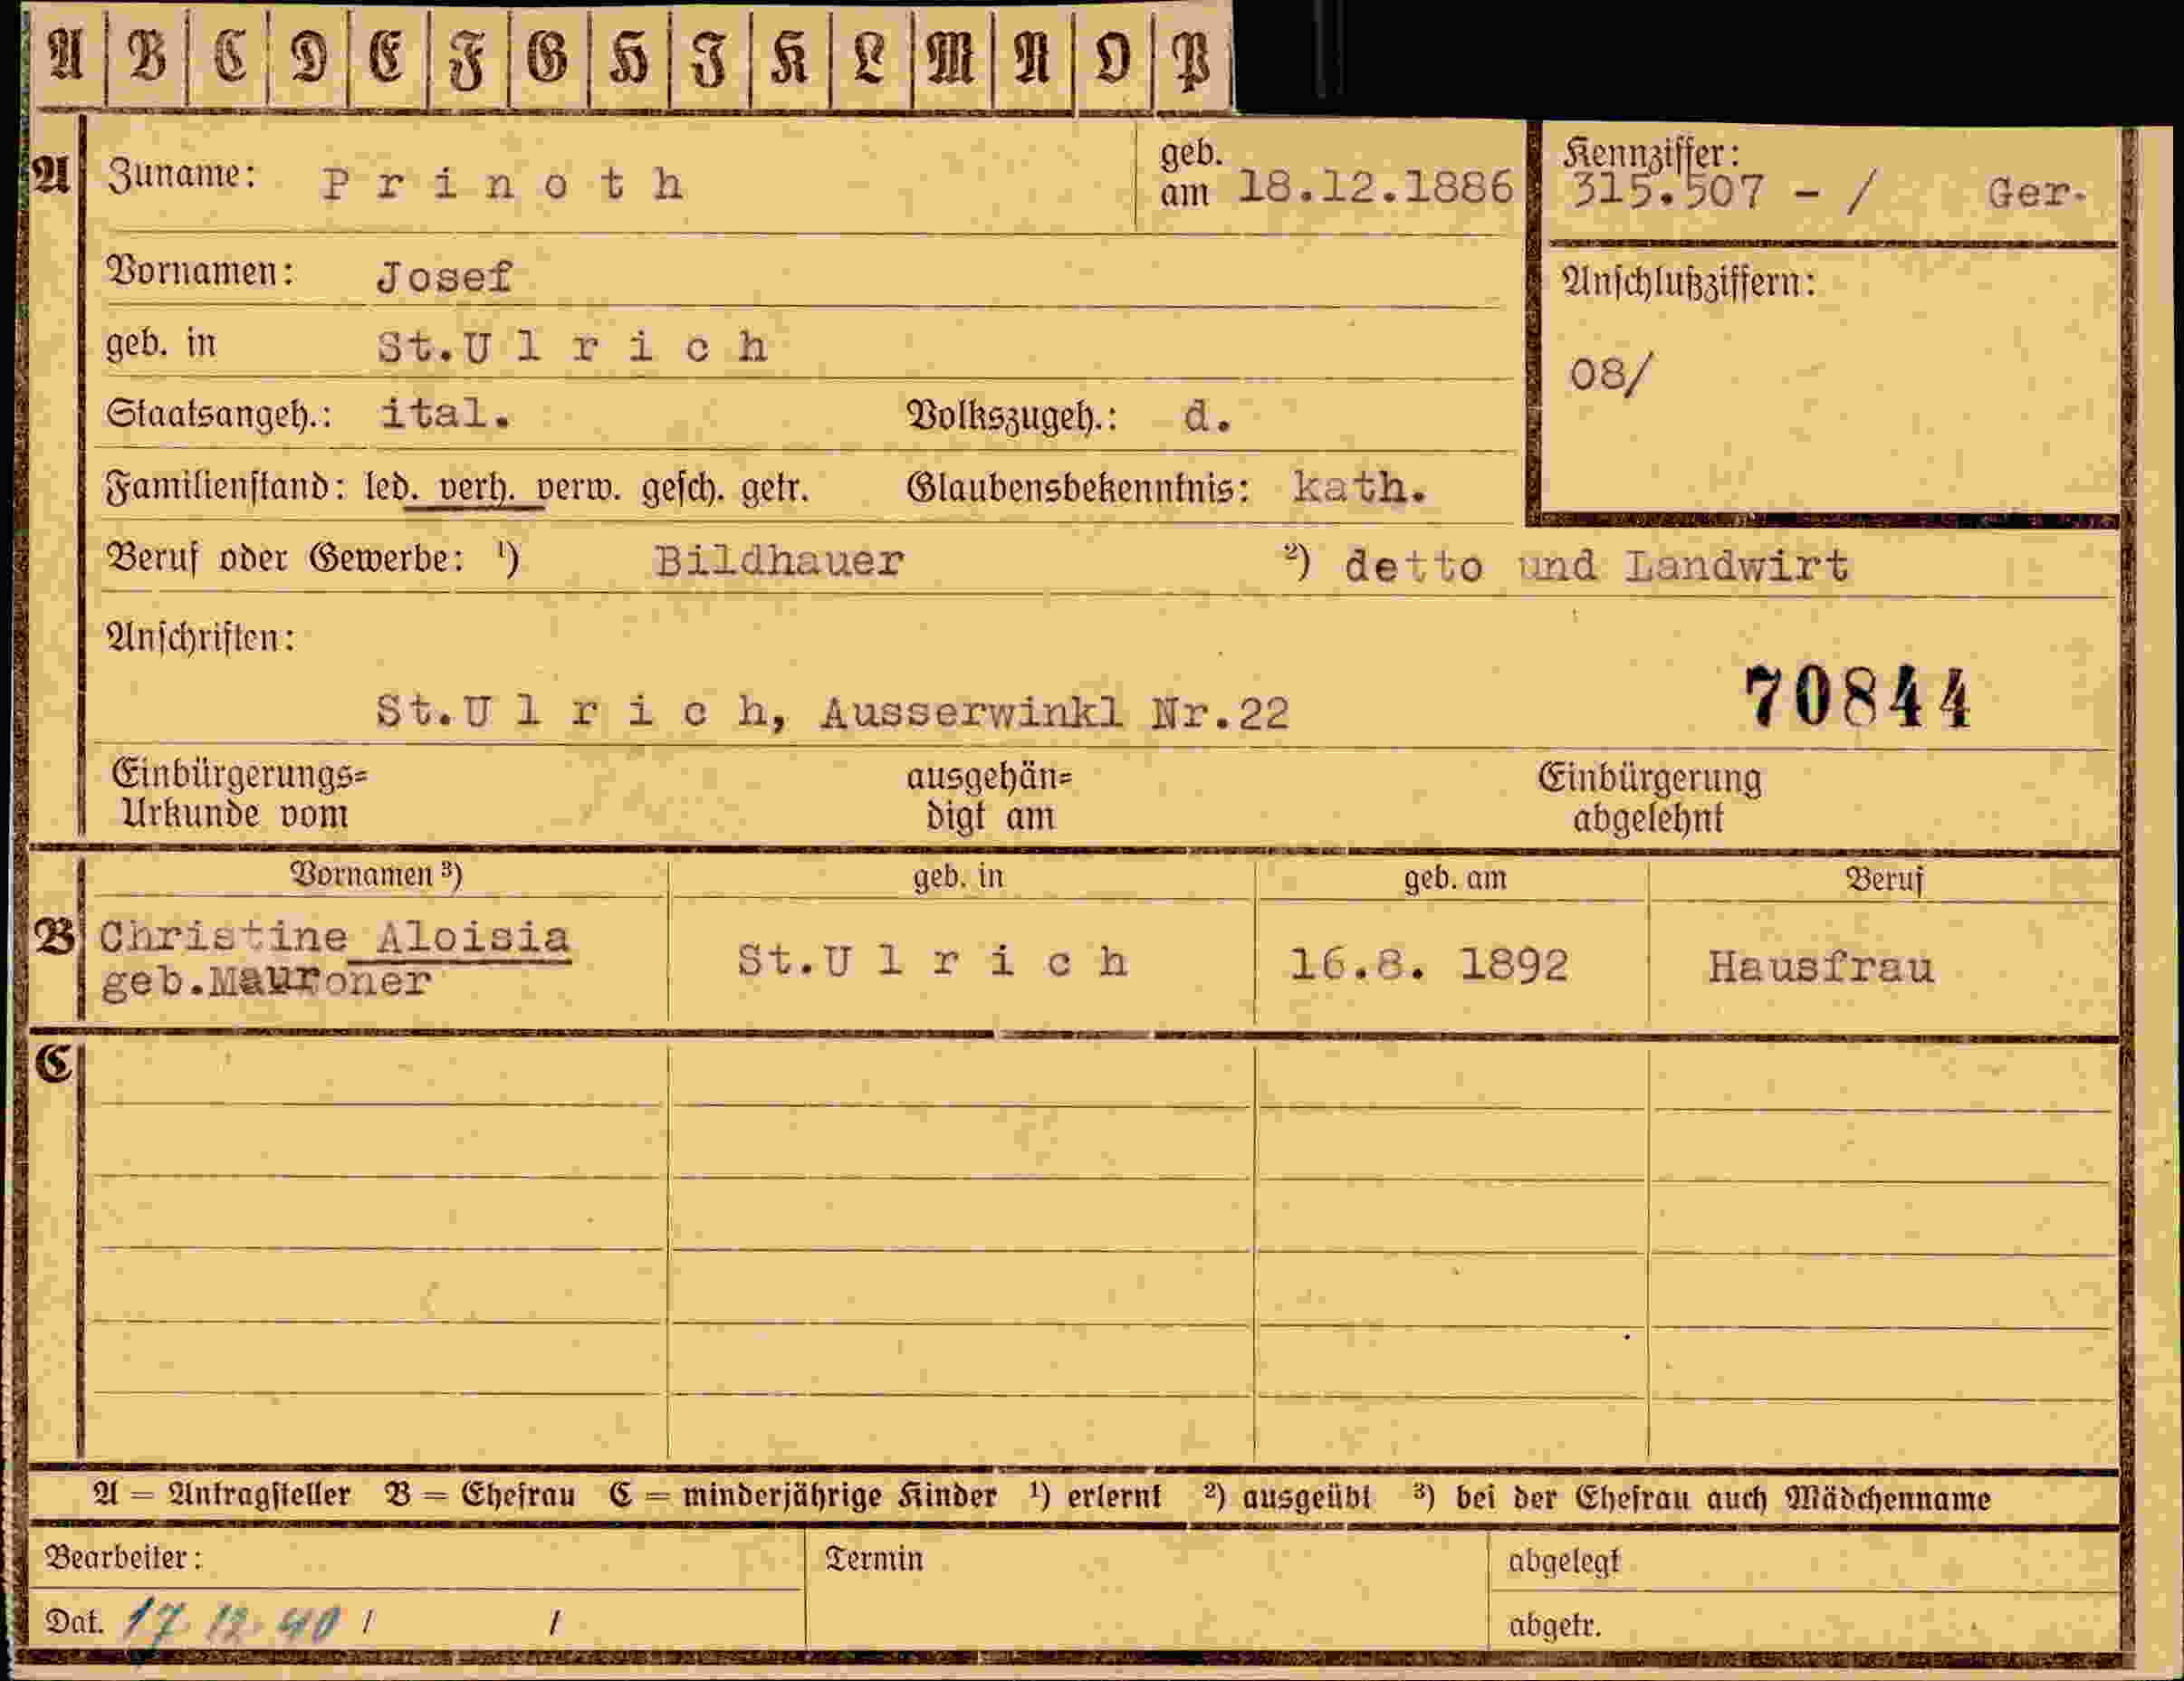 A B C D E F G H I K L M N O P
A Zuname: Prinoth geb. am 18.12.1886
Kennziffer: 315.507 - / Ger.
Vornamen: Josef
Anschlußziffern:
geb. in St.Ulrich
08/
Staatsangeh.: ital. Volkszugeh.: d.
Familienstand: led. verh. verw. gesch. getr. Glaubensbekenntnis: kath.
Beruf oder Gewerbe: ¹) Bildhauer ²) detto und Landwirt
Anschriften:
St.Ulrich, Ausserwinkl Nr.22
70844
Einbürgerungs= ausgehän= Einbürgerung
Urkunde vom digt am abgelehnt
Vornamen ³) geb. in geb. am Beruf
B Christine Aloisia St.Ulrich 16.8. 1892 Hausfrau
geb.Mauroner
C
A = Antragsteller B = Ehefrau C = minderjährige Kinder ¹) erlernt ²) ausgeübt ³) bei der Ehefrau auch Mädchenname
Bearbeiter: Termin abgelegt
Dat. 17.12.40 / / abgetr.